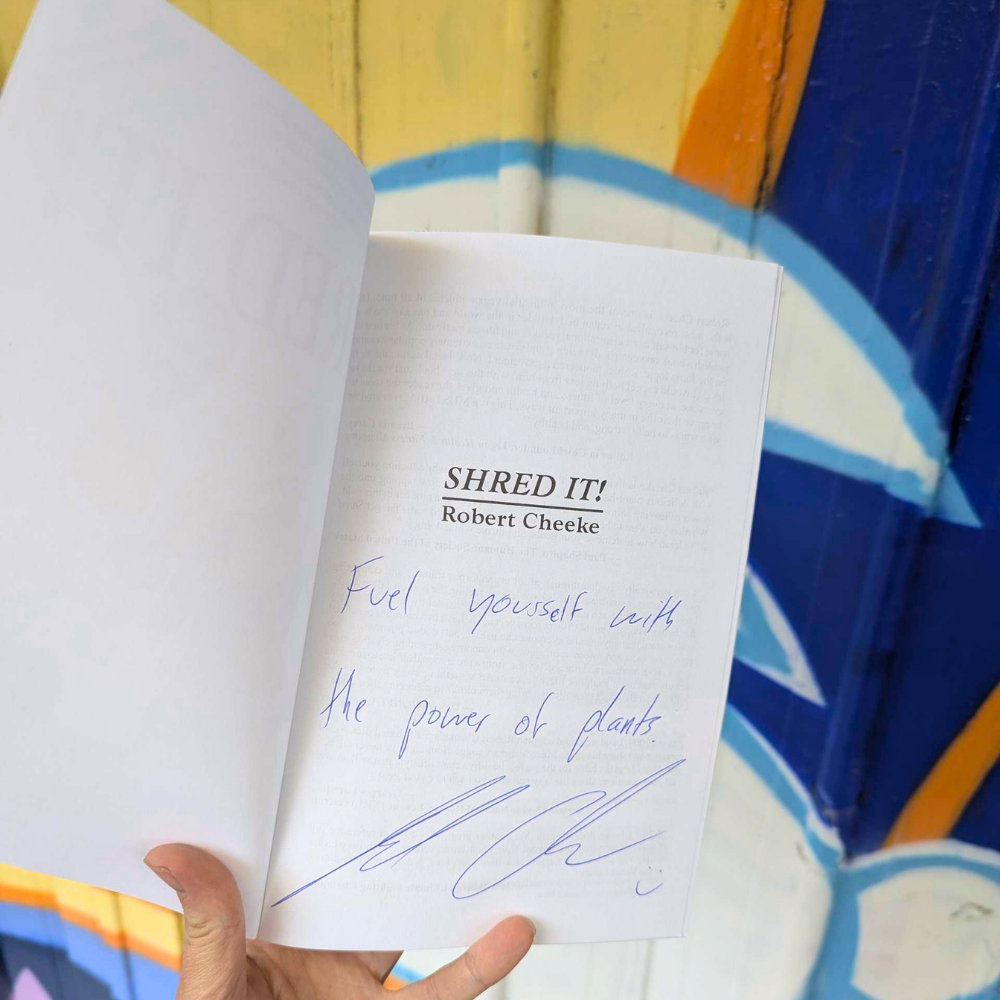 SHRED IT!
Robert Cheeke
Fuel yourself with
the power of plants.